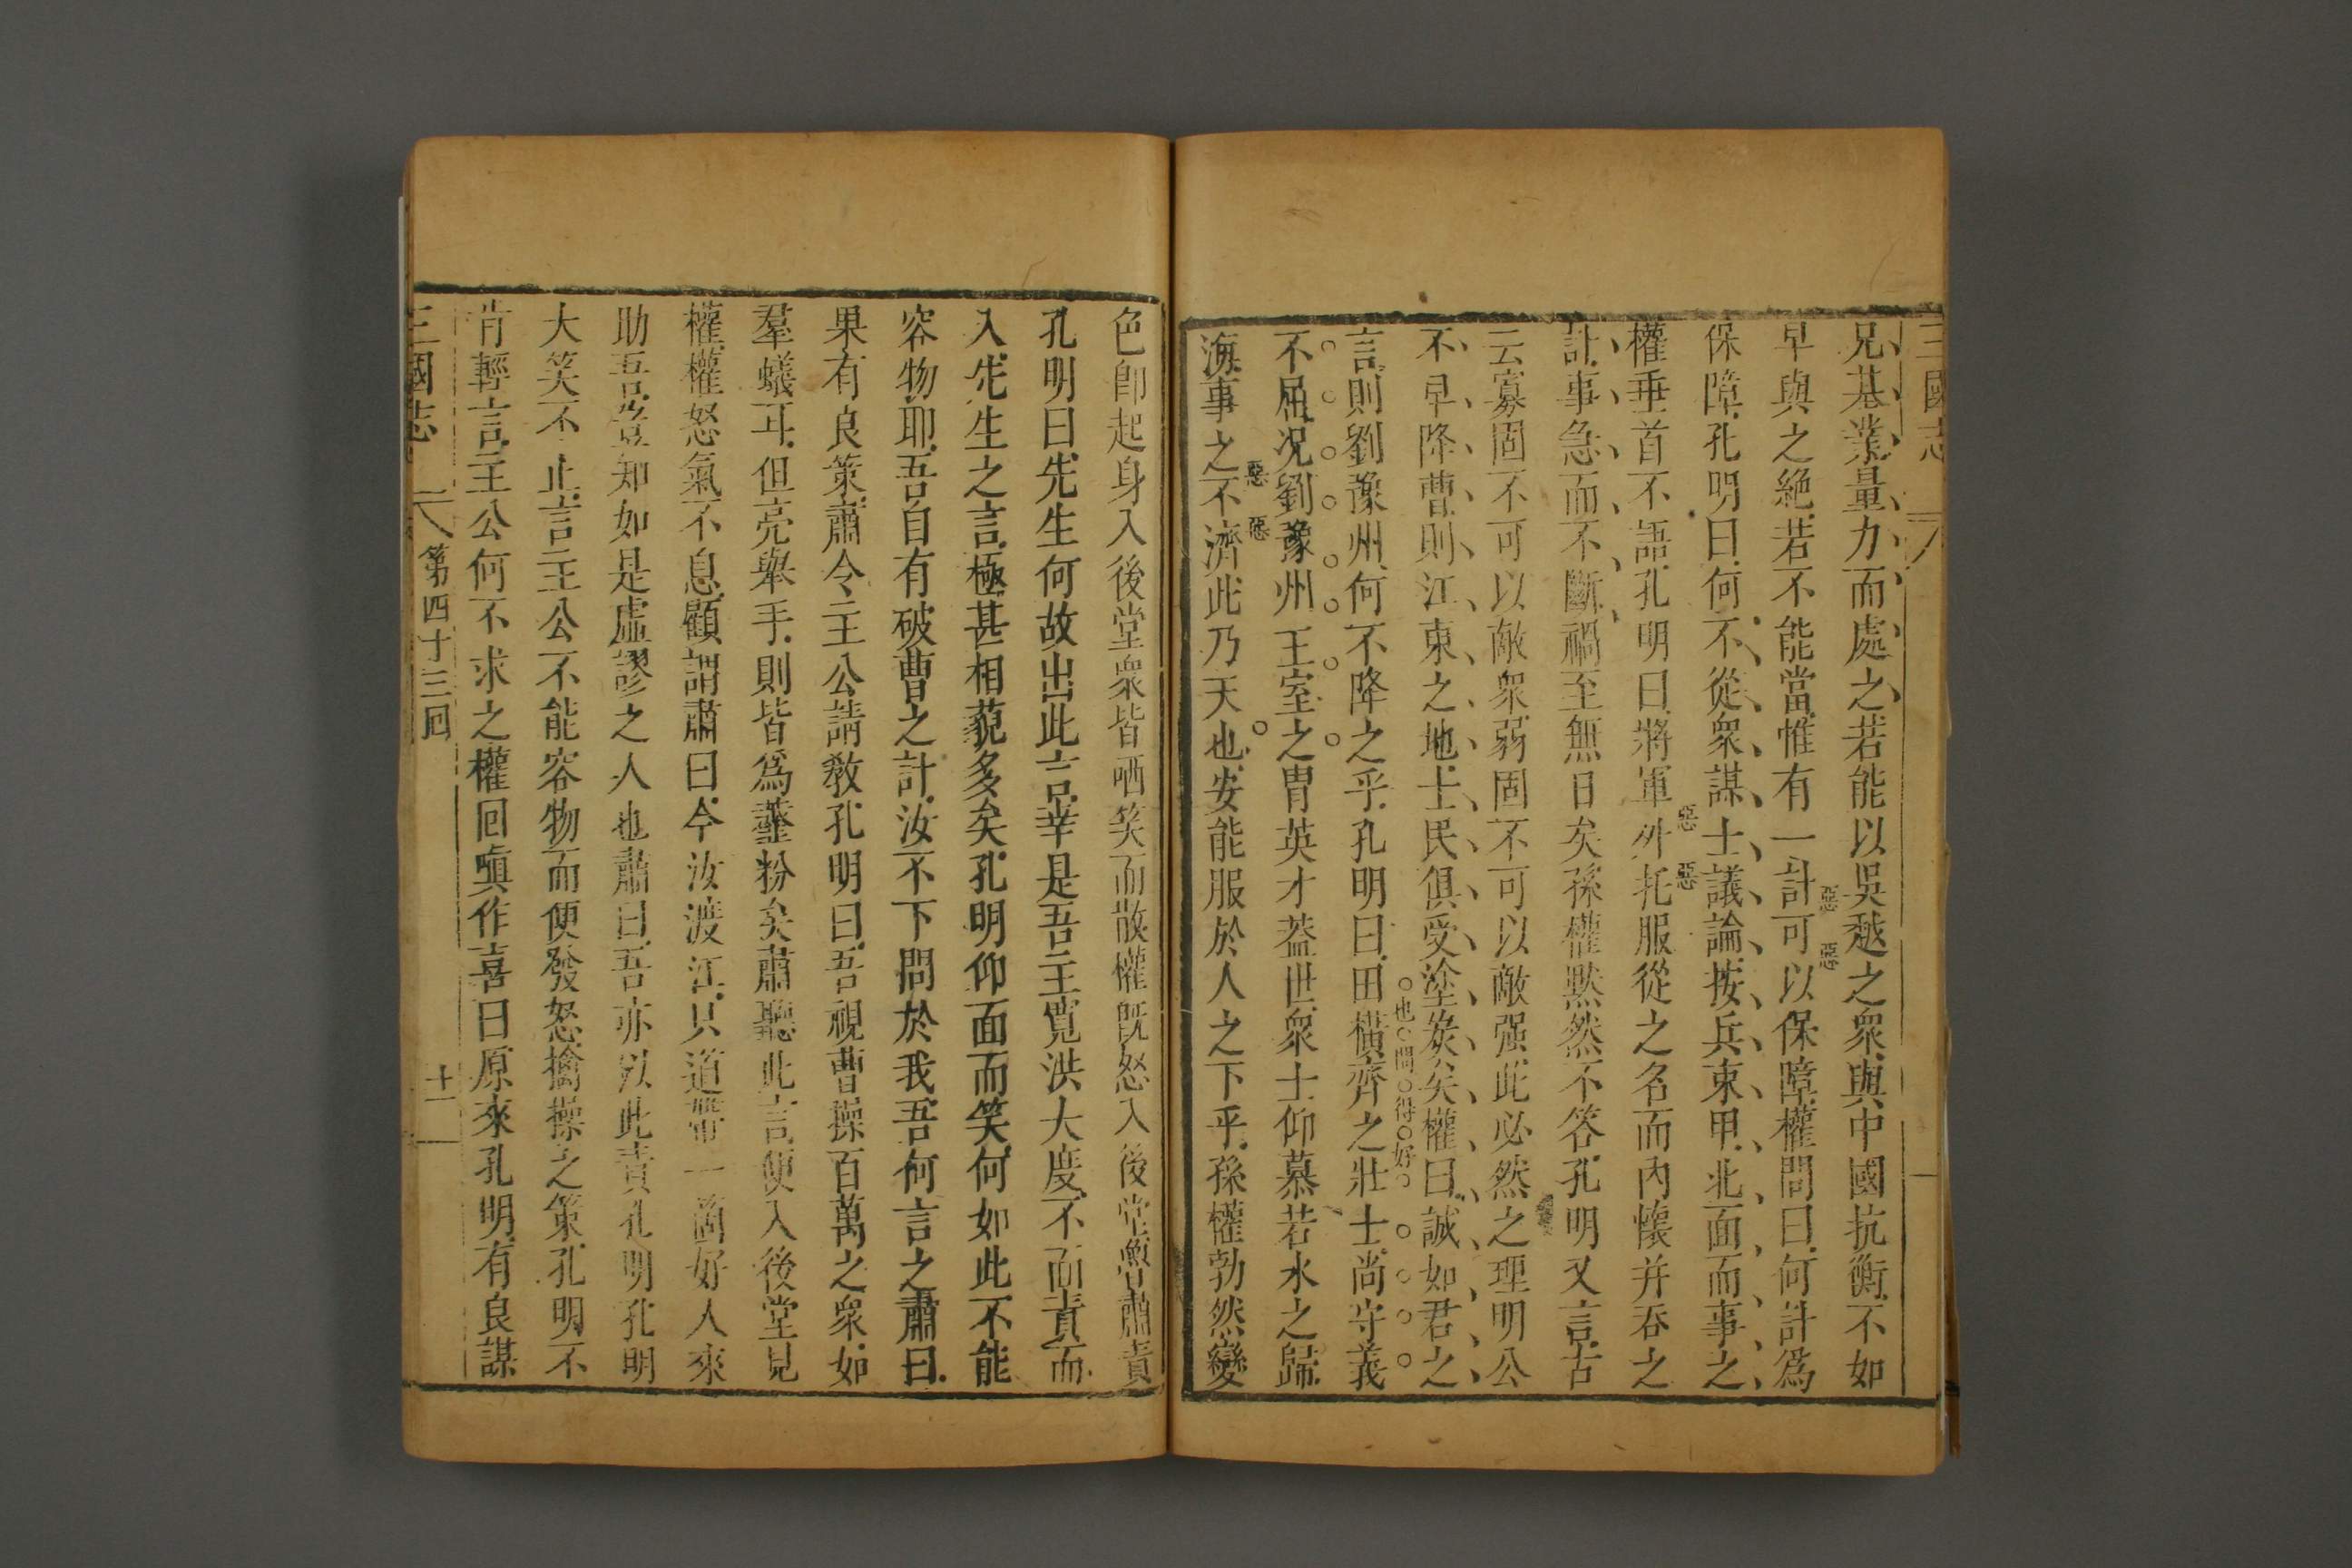 三國志
兄基業量力而處之若能以吳越之衆與中國抗衡不如
早與之絶若不能當惟有一計可以保障權問曰何計爲
惡 惡
保障孔明曰何不從衆謀士議論按兵束甲北面而事之
權垂首不語孔明曰將軍外托服從之名而內懷并吞之
惡 惡
計事急而不斷禍至無日矣孫權黙然不答孔明又言古
云寡固不可以敵衆弱固不可以敵强此必然之理明公
不早降曹則江東之地士民俱受塗炭矣權曰誠如君之
言則劉豫州何不降之乎孔明曰田橫齊之壯士尚守義
也問得好
不屈况劉豫州王室之胄英才葢世衆士仰慕若水之歸
海事之不濟此乃天也安能服於人之下乎孫權勃然變
惡 惡
色卽起身入後堂衆皆哂笑而散權旣怒入後堂魯肅責
孔明曰先生何故出此言幸是吾主寬洪大度不面責而
入先生之言極甚相藐多矣孔明仰面而笑何如此不能
容物耶吾自有破曹之計汝不下問於我吾何言之肅曰
果有良策肅令主公請敎孔明曰吾視曹操百萬之衆如
羣蟻耳但亮舉手則皆爲虀粉矣肅聽此言便入後堂見
權權怒氣不息顧謂肅曰今汝渡江只道帶一箇好人來
助吾豈知如是虛謬之人也肅曰吾亦以此責孔明孔明
大笑不止言主公不能容物而便發怒擒操之策孔明不
肯輕言主公何不求之權回嗔作喜曰原來孔明有良謀
三國志 第四十三回 十一